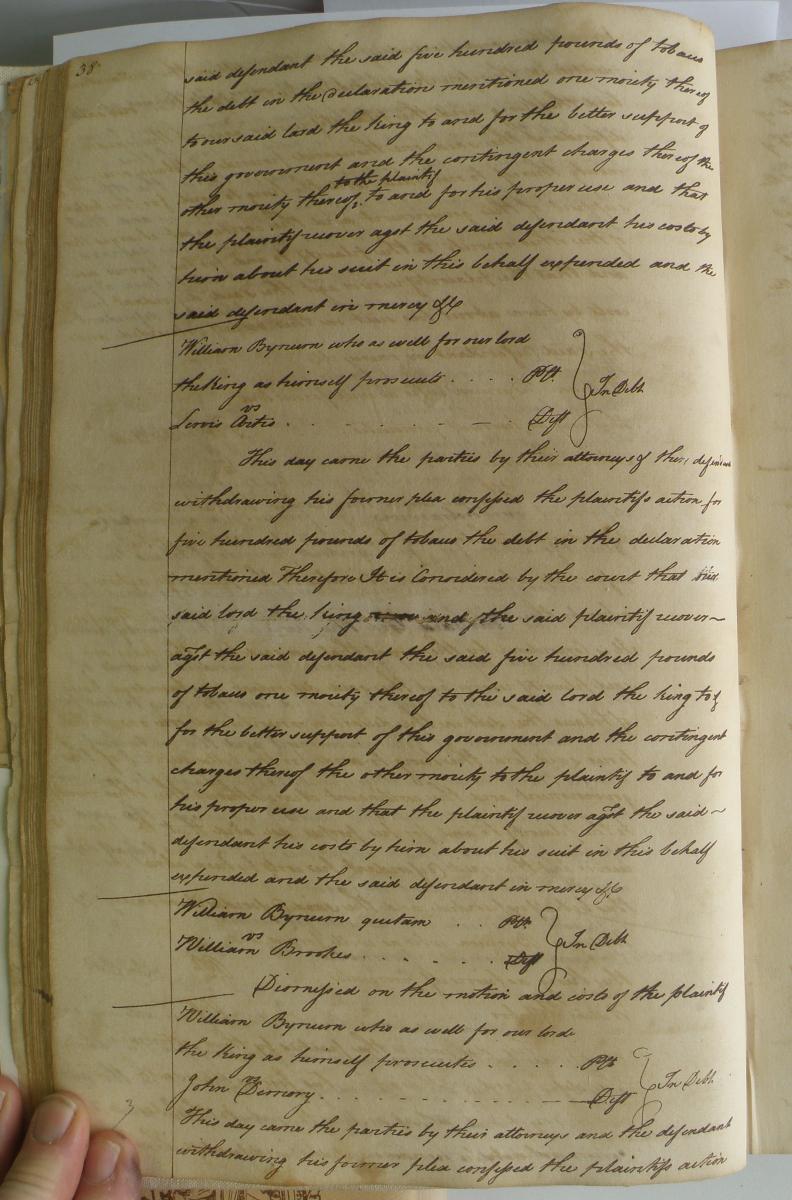 38
said defendant the said five hundred pounds of tobaco
the debt in the Declaration mentioned one moiety thereof
to our said lord the king to and for the better support of
this government and the contingent charges thereof the
to the plaintif
other moiety thereof, to and for his proper use and that
the plaintif recover agst the said defendant his costs by
him about his suit in this behalf expended and the
said defendant in mercy &c
William Bynum who as well for our lord
the king as himself prosecuts . . . . Plt.
In Debt
vs
Lewis Artis . . . . . — Deft
This day came the parties by their attorneys & the defendant
withdrawing his former plea confessed the plaintifs action for
five hundred pounds of tobaco the debt in the declaration
mentioned Therefore It is Considered by the court that
said lord the king and the said plaintif recover~
agst the said defendant the said five hundred pounds
of tobaco one moiety thereof to the said lord the king to &
for the better support of this government and the contingent
charges thereof the other moiety to the plaintif to and for
his proper use and that the plaintif recover agst the said ~
defendant his costs by him about his suit in this behalf
expended and the said defendant in mercy &c
William Bynum quitam . . Plt.
vs
In Debt
William Brookes . . . . . . Deft
Dismissed on the motion and costs of the plaintif
William Bynum who as well for our lord
the king as himself prosecutes . . . . . Plt
vs
In Debt
John Demory . . . . . . . — Deft
This day came the parties by their attorneys and the defendant
withdrawing his former plea confessed the plaintifs action